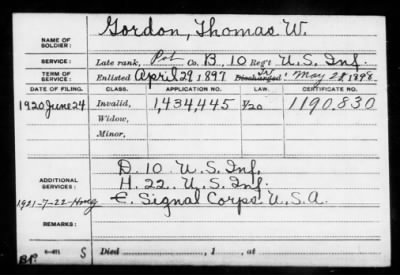 NAME OF SOLDIER: Gordon, Thomas W.
SERVICE: Late rank, Pvt Co. B, 10 Reg't U.S. Inf.
TERM OF SERVICE: Enlisted April 29, 1897 Discharged Tr. May 28, 1898
DATE OF FILING. CLASS. APPLICATION NO. LAW. CERTIFICATE NO.
1920 June 24 Invalid, 1,434,445 1/20 1190.830
Widow,
Minor,
D. 10 U.S. Inf.
ADDITIONAL SERVICES: H. 22. U.S. Inf.
1921-7-22- E. Signal Corps. U.S.A.
REMARKS:
S Died , 1 , at